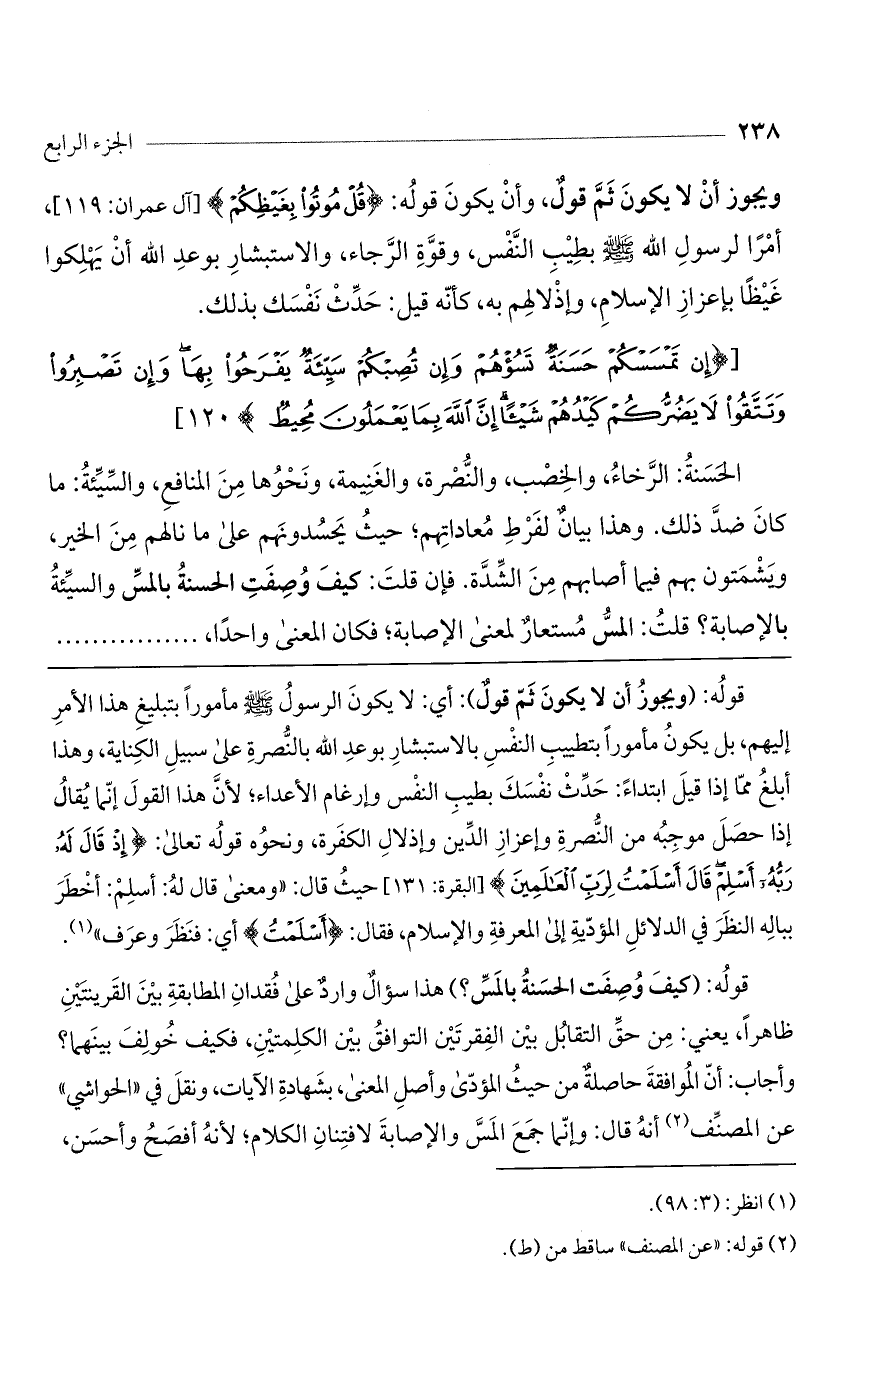 ٢٣٨ الجزء الرابع
ويجوز أنْ لا يكونَ ثَمَّ قولٌ، وأنْ يكونَ قولُه: ﴿قُلْ مُوتُوا۟ بِغَيْظِكُمْ﴾ [آل عمران: ١١٩]،
أمْرًا لرسولِ الله ﷺ بطِيْبِ النَّفْس، وقوَّةِ الرَّجاء، والاستبشارِ بوعدِ الله أنْ يَهْلِكوا
غَيْظًا بإعزازِ الإسلامِ، وإذْلالِهِم به، كأنّه قيل: حَدِّثْ نَفْسَك بذلك.
[﴿إِن تَمْسَسْكُمْ حَسَنَةٌ تَسُؤْهُمْ وَإِن تُصِبْكُمْ سَيِّئَةٌ يَفْرَحُوا۟ بِهَا ۖ وَإِن تَصْبِرُوا۟
وَتَتَّقُوا۟ لَا يَضُرُّكُمْ كَيْدُهُمْ شَيْـًٔا ۗ إِنَّ ٱللَّهَ بِمَا يَعْمَلُونَ مُحِيطٌ﴾ ١٢٠]
الحَسَنةُ: الرَّخاءُ، والخِصْب، والنُّصْرة، والغَنِيمة، ونَحْوُها مِنَ المنافعِ، والسِّيِّئةُ: ما
كانَ ضدَّ ذلك. وهذا بيانٌ لفَرْطِ مُعاداتِهم؛ حيثُ يَحسُدونَهم علىٰ ما نالهم مِنَ الخيرِ،
ويَشْمَتون بهم فيما أصابهم مِنَ الشِّدَّة. فإن قلتَ: كيفَ وُصِفَتِ الحسنةُ بالمسِّ والسيِّئةُ
بالإصابة؟ قلتُ: المسُّ مُستعارٌ لمعنىٰ الإصابة؛ فكان المعنىٰ واحدًا، ................
قولُه: (ويجوزُ أن لا يكونَ ثَمّ قولٌ): أي: لا يكونَ الرسولُ ﷺ مأموراً بتبليغِ هذا الأمرِ
إليهم، بل يكونُ مأموراً بتطييبِ النفْسِ بالاستبشارِ بوعدِ الله بالنُّصرةِ علىٰ سبيلِ الكِناية، وهذا
أبلغُ ممّا إذا قيلَ ابتداءً: حَدِّثْ نفْسَكَ بطيبِ النفْس وإرغام الأعداء؛ لأنَّ هذا القولَ إنّما يُقالُ
إذا حصَلَ موجِبُه من النُّصرةِ وإعزازِ الدِّين وإذلالِ الكفَرة، ونحوُه قولُه تعالىٰ: ﴿إِذْ قَالَ لَهُۥ
رَبُّهُۥٓ أَسْلِمْ ۖ قَالَ أَسْلَمْتُ لِرَبِّ ٱلْعَـٰلَمِينَ﴾ [البقرة: ١٣١] حيثُ قال: «ومعنىٰ قال لهُ: أسلِمْ: أخْطَرَ
ببالِه النظَرَ في الدلائلِ المؤدّيةِ إلىٰ المعرفةِ والإسلام، فقال: ﴿أَسْلَمْتُ﴾ أي: فنَظَرَ وعرَف»(١).
قولُه: (كيفَ وُصِفَت الحسَنةُ بالمَسِّ؟) هذا سؤالٌ واردٌ علىٰ فُقدانِ المطابقةِ بيْنَ القَرينتَيْنِ
ظاهراً، يعني: مِن حقِّ التقابُل بيْن الفِقرتَيْن التوافقُ بيْن الكلِمتيْنِ، فكيف خُولِفَ بينَهما؟
وأجاب: أنّ المُوافقةَ حاصلةٌ من حيثُ المؤدّىٰ وأصلِ المعنىٰ، بشَهادةِ الآيات، ونقلَ في «الحواشي»
عن المصنِّف(٢) أنهُ قال: وإنّما جمَعَ المَسَّ والإصابةَ لافتِنانِ الكلام؛ لأنهُ أفصَحُ وأحسَن،
(١) انظر: (٣: ٩٨).
(٢) قوله: «عن المصنف» ساقط من (ط).